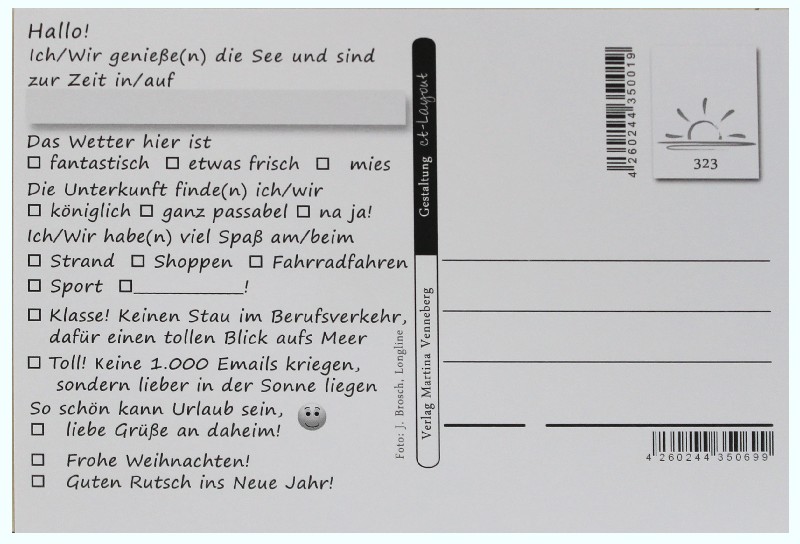 Hallo!
Ich/Wir genieße(n) die See und sind
zur Zeit in/auf
Das Wetter hier ist
☐ fantastisch ☐ etwas frisch ☐ mies
Die Unterkunft finde(n) ich/wir
☐ königlich ☐ ganz passabel ☐ na ja!
Ich/Wir habe(n) viel Spaß am/beim
☐ Strand ☐ Shoppen ☐ Fahrradfahren
☐ Sport ☐__________!
☐ Klasse! Keinen Stau im Berufsverkehr,
dafür einen tollen Blick aufs Meer
☐ Toll! Keine 1.000 Emails kriegen,
sondern lieber in der Sonne liegen
So schön kann Urlaub sein,
☐ liebe Grüße an daheim!
☐ Frohe Weihnachten!
☐ Guten Rutsch ins Neue Jahr!
Foto: J. Brosch, Longline
Verlag Martina Venneberg
Gestaltung ct-Layout
4 260244 350019
323
4 260244 350699